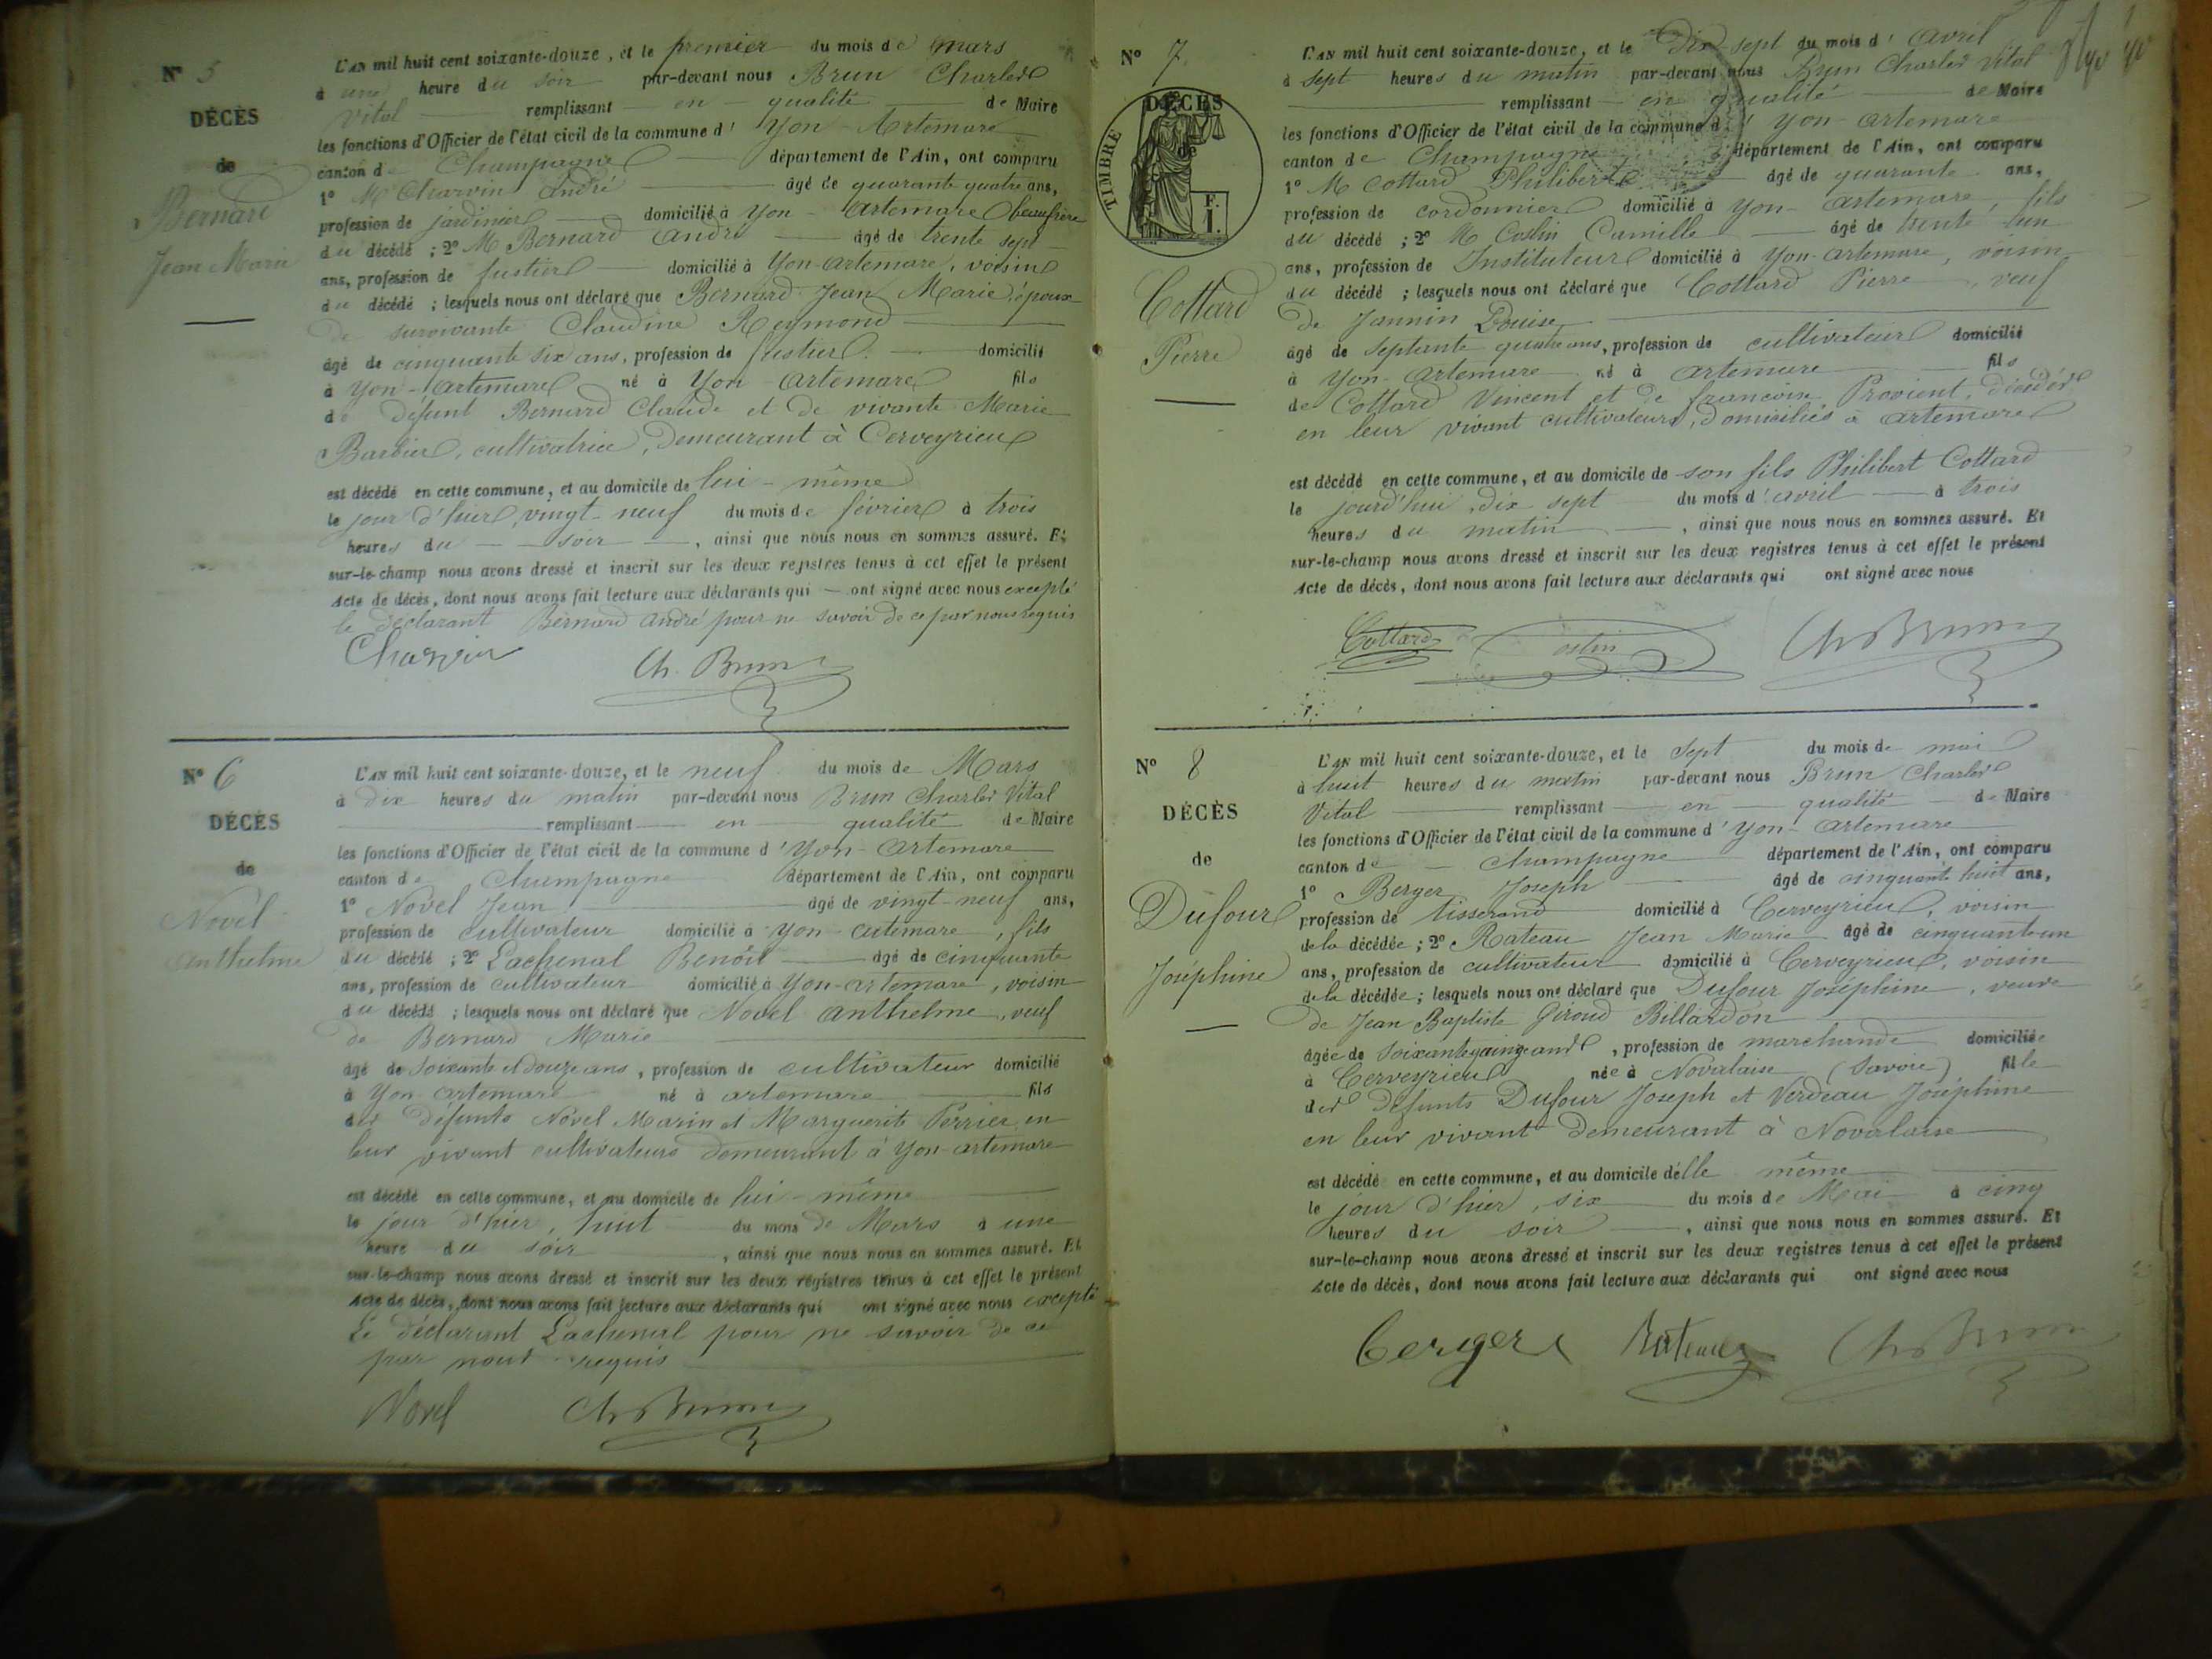 N° 5
DÉCÈS
de
Bernard
Jean Marie
L'AN mil huit cent soixante-douze, et le premier du mois de mars
à une heure du soir par-devant nous Brun Charles
Vital remplissant en qualité de Maire
les fonctions d'Officier de l'état civil de la commune d' Yon-Artemare
canton de Champagne département de l'Ain, ont comparu
1° M Charvin André âgé de quarante quatre ans,
profession de jardinier domicilié à Yon-Artemare beaufrère
du décédé ; 2° M Bernard André âgé de trente sept
ans, profession de fustier domicilié à Yon-Artemare, voisin
du décédé ; lesquels nous ont déclaré que Bernard Jean Marie, époux
de survivante Claudine Reymond
âgé de cinquante six ans, profession de fustier domicilié
à Yon-Artemare né à Yon-Artemare fils
de défunt Bernard Claude et de vivante Marie
Barbier, cultivatrice, demeurant à Cerveyrieu
est décédé en cette commune, et au domicile de lui-même
le jour d'hier, vingt-neuf du mois de février à trois
heures du soir, ainsi que nous nous en sommes assuré. Et
sur-le-champ nous avons dressé et inscrit sur les deux registres tenus à cet effet le présent
Acte de décès, dont nous avons fait lecture aux déclarants qui ont signé avec nous excepté
le déclarant Bernard André pour ne savoir de ce par nous requis
Charvin Ch. Brun
N° 6
DÉCÈS
de
Novel
Anthelme
L'AN mil huit cent soixante-douze, et le neuf du mois de Mars
à dix heures du matin par-devant nous Brun Charles Vital
remplissant en qualité de Maire
les fonctions d'Officier de l'état civil de la commune d' Yon-Artemare
canton de Champagne département de l'Ain, ont comparu
1° Novel Jean âgé de vingt-neuf ans,
profession de cultivateur domicilié à Yon-Artemare, fils
du décédé ; 2° Lachenal Benôit âgé de cinquante
ans, profession de cultivateur domicilié à Yon-artemare, voisin
du décédé ; lesquels nous ont déclaré que Novel Anthelme, veuf
de Bernard Marie
âgé de soixante et douze ans, profession de cultivateur domicilié
à Yon-artemare né à artemare fils
des défunts Novel Marin et Marguerite Perrier en
leur vivant cultivateurs demeurant à Yon-artemare
est décédé en cette commune, et au domicile de lui-même
le jour d'hier, huit du mois de Mars à une
heure du soir, ainsi que nous nous en sommes assuré. Et
sur-le-champ nous avons dressé et inscrit sur les deux registres tenus à cet effet le présent
Acte de décès, dont nous avons fait lecture aux déclarants qui ont signé avec nous excepté
Le déclarant Lachenal pour ne savoir de ce
par nous requis
Novel Ch Brun
N° 7
TIMBRE
DÉCÈS
de
F.
1.
Cottard
Pierre
L'AN mil huit cent soixante-douze, et le Dix-sept du mois d' Avril
à sept heures du matin par-devant nous Brun Charles Vital
remplissant en qualité de Maire
les fonctions d'Officier de l'état civil de la commune d' Yon-Artemare
canton de Champagne département de l'Ain, ont comparu
1° M Cottard Philibert âgé de quarante ans,
profession de cordonnier domicilié à Yon-Artemare, fils
du décédé ; 2° M Costin Camille âgé de trente un
ans, profession de Instituteur domicilié à Yon-Artemare, voisin
du décédé ; lesquels nous ont déclaré que Cottard Pierre, veuf
de Jannin Louise
âgé de septante quatre ans, profession de cultivateur domicilié
à Yon-Artemare né à artemare fils
de Cottard Vincent et de francoise Provient, décédés
en leur vivant cultivateurs, domiciliés à artemare
est décédé en cette commune, et au domicile de son fils Philibert Cottard
le jourd'hui, dix sept du mois d'avril à trois
heures du matin, ainsi que nous nous en sommes assuré. Et
sur-le-champ nous avons dressé et inscrit sur les deux registres tenus à cet effet le présent
Acte de décès, dont nous avons fait lecture aux déclarants qui ont signé avec nous
Cottard Costin Ch Brun
N° 8
DÉCÈS
de
Dufour
Joséphine
L'AN mil huit cent soixante-douze, et le sept du mois de mai
à huit heures du matin par-devant nous Brun Charles
Vital remplissant en qualité de Maire
les fonctions d'Officier de l'état civil de la commune d' Yon-Artemare
canton de Champagne département de l'Ain, ont comparu
1° Berger Joseph âgé de cinquante huit ans,
profession de tisserand domicilié à Cerveyrieu, voisin
de la décédée ; 2° Rateau Jean Marie âgé de cinquante un
ans, profession de cultivateur domicilié à Cerveyrieu, voisin
de la décédée ; lesquels nous ont déclaré que Dufour Joséphine, veuve
de Jean Baptiste Giroud Billardon
âgée de soixante quinze ans, profession de marchande domiciliée
à Cerveyrieu née à Novalaise (Savoie) fille
des défunts Dufour Joseph et Verdeau Joséphine
en leur vivant demeurant à Novalaise
est décédé en cette commune, et au domicile d'elle même
le jour d'hier, six du mois de Mai à cinq
heures du soir, ainsi que nous nous en sommes assuré. Et
sur-le-champ nous avons dressé et inscrit sur les deux registres tenus à cet effet le présent
Acte de décès, dont nous avons fait lecture aux déclarants qui ont signé avec nous
Berger Rateau Ch Brun